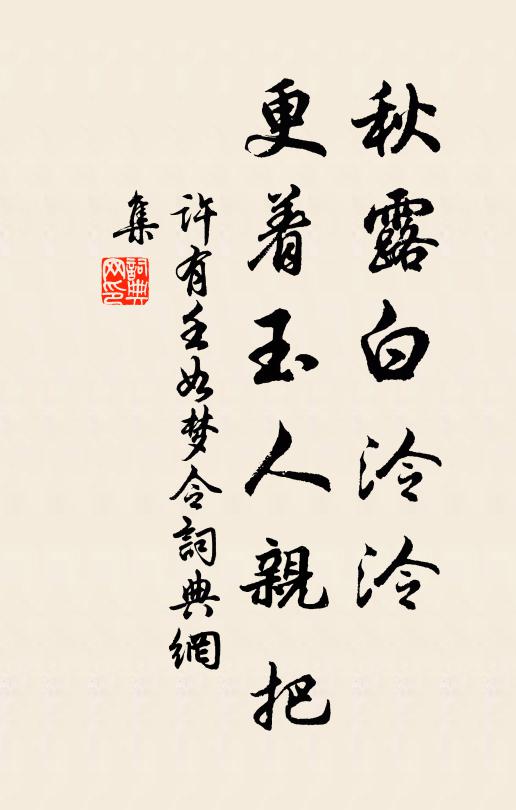 秋露白泠泠
更着玉人親把
许有壬如梦令詞典網
集
詞典
网印